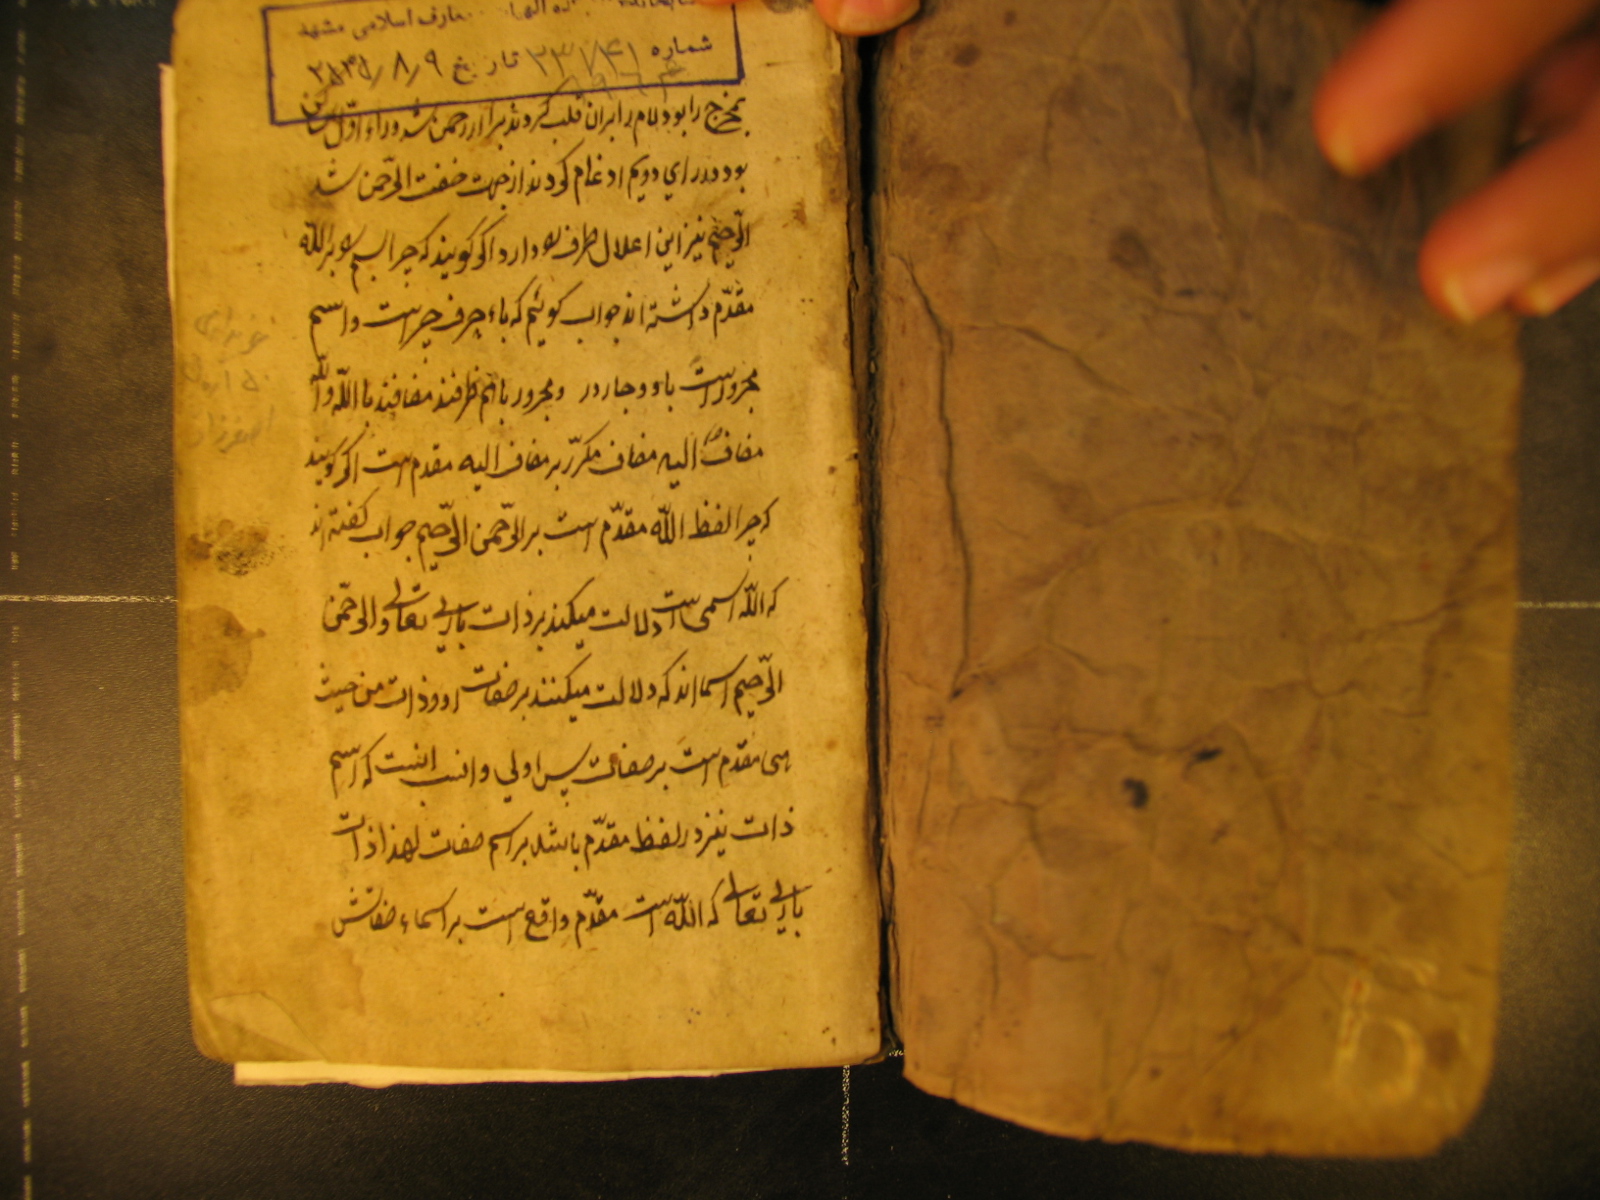 معارف اسلامی مشهد
شماره ۲۳۱۴۱ تاریخ ۹ر۸ر
بمخرج را بود لام را بران قلب کردند برا اررحمن شد و راء اوّل ساکن
بود در رای دویم ادغام کردند از جهت خفت الرّحمن شد
الرّحیم نیز این اعلال دارد اگر گویند که چرا بسم را بر الله
مقدّم داشته اند جواب گوئیم که باء حرف جر است و اسم
مجرور است باء و جار در و مجرور با هم ظرفند مضافند با اللّه و اللّه
مضاف الیه مضاف مکرّر بر مضاف الیه مقدم است اگر گویند
که چرا لفظ اللّه مقدّم است بر الرّحمن الرّحیم جواب گفته اند
که اللّه اسمی است دلالت میکند بر ذات باری تعالی و الرّحمن
الرّحیم اسما اند که دلالت میکنند بر صفات او و ذات من حیث
هی مقدم است بر صفات پس اولی و انسب اینست که اسم
ذات نیز در لفظ مقدّم باشد بر اسم صفات لهذا ذات
باری تعالی که اللّه است مقدّم واقع است بر اسماء صفاتش